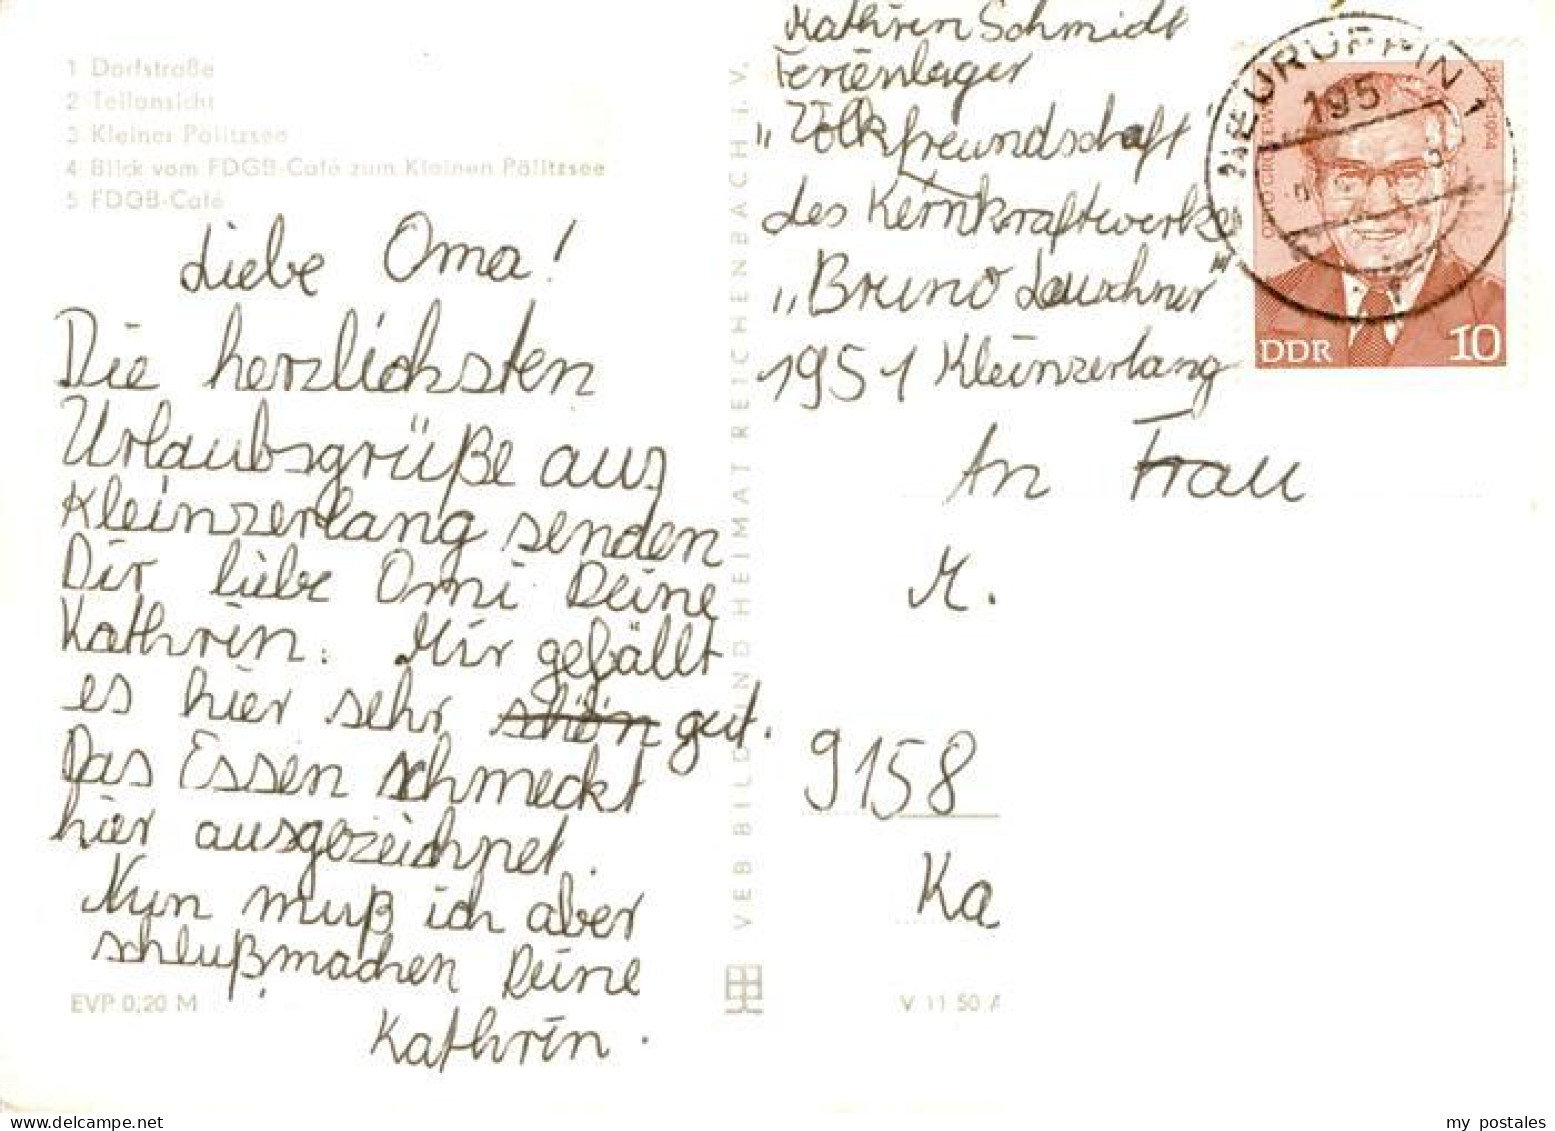 1 Dorfstraße
2 Teilansicht
3 Kleiner Pälitzsee
4 Blick vom FDGB-Café zum Kleinen Pälitzsee
5 FDGB-Café
Liebe Oma!
Die herzlichsten
Urlaubsgrüße aus
Kleinzerlang senden
Dir liebe Omi Deine
Kathrin. Mir gefällt
es hier sehr schön gut.
Das Essen schmeckt
hier ausgezeichnet.
Nun muß ich aber
schlußmachen Deine
Kathrin.
EVP 0,20 M
VEB BILD UND HEIMAT REICHENBACH I. V.
Kathrin Schmidt
Ferienlager
"Völkfreundschaft"
des Kernkraftwerkes
"Bruno Leuschner
1951 Kleinzerlang
An Frau
M.
9158
Ka
V 11 50 A
NEURUPPIN 1
195
OTTO GROTEWOHL
1894-1964
DDR 10
my postales